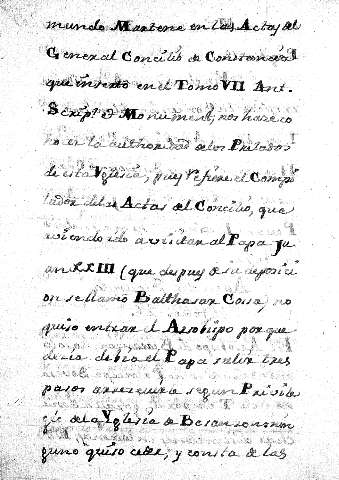 mundo Martene en las Actas del
General Concilio de Constancia
que inserto en el Tomo VII Ant.
Script. et Monument, nos hace co
nocer la authoridad de los Prelados
de esta Yglesia, pues refiere el Compi
lador de las Actas del Concilio, que
viendo ido a visitar al Papa Ju
an XXIII (que despues de su deposici
on se llamó Balthasar Cossa, no
quiso entrar el Arzobispo por que
decia debia el Papa salir tres
pasos a recevirle segun Privile
gio de la Yglesia de Besanson nin
guno quiso ceder, y consta de las